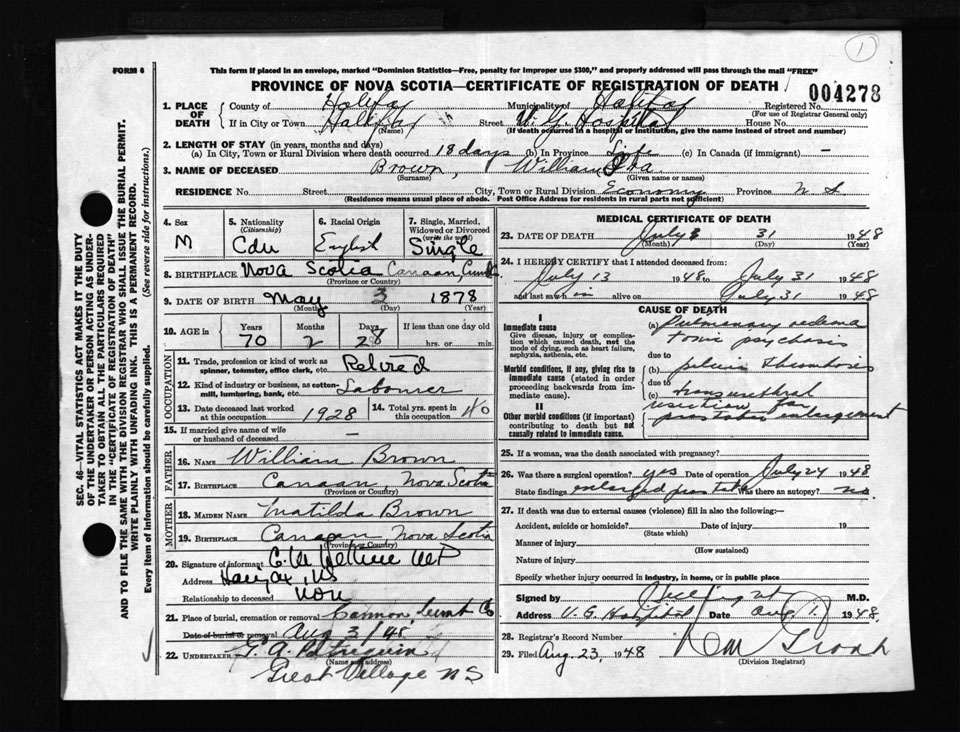 1
FORM 6
This form if placed in an envelope, marked "Dominion Statistics—Free, penalty for improper use $300," and properly addressed will pass through the mail "FREE"
PROVINCE OF NOVA SCOTIA—CERTIFICATE OF REGISTRATION OF DEATH
004278
1. PLACE OF DEATH County of Halifax Municipality of Halifax Registered No.
(For use of Registrar General only)
If in City or Town Halifax Street V. G. Hospital House No.
(Name) (If death occurred in a hospital or institution, give the name instead of street and number)
2. LENGTH OF STAY (in years, months and days)
(a) In City, Town or Rural Division where death occurred 18 days (b) In Province Life (c) In Canada (if immigrant) —
3. NAME OF DECEASED Brown, William Ira
(Surname) (Given name or names)
RESIDENCE No. Street City, Town or Rural Division Economy Province N S
(Residence means usual place of abode. Post Office Address for residents in rural parts not sufficient)
4. Sex M
5. Nationality (Citizenship) Cdn
6. Racial Origin English
7. Single, Married, Widowed or Divorced (write the word) Single
8. BIRTHPLACE Nova Scotia Canaan, Cumb.
(Province or Country)
9. DATE OF BIRTH May 3 1878
(Month) (Day) (Year)
10. AGE in Years Months Days If less than one day old
70 2 28 hrs. or min.
OCCUPATION
11. Trade, profession or kind of work as spinner, teamster, office clerk, etc. Retired
12. Kind of industry or business, as cotton-mill, lumbering, bank, etc. Labourer
13. Date deceased last worked at this occupation 1928
14. Total yrs. spent in this occupation 40
15. If married give name of wife or husband of deceased —
FATHER
16. NAME William Brown
17. BIRTHPLACE Canaan, Nova Scotia
(Province or Country)
MOTHER
18. MAIDEN NAME Matilda Brown
19. BIRTHPLACE Canaan Nova Scotia
(Province or Country)
20. Signature of informant
Address Halifax, NS
Relationship to deceased non
21. Place of burial, cremation or removal Cannon, Cumb Co
Date of burial or removal Aug 3/48
22. UNDERTAKER T. A. Patriquin
(Name and address)
Great Village N S
MEDICAL CERTIFICATE OF DEATH
23. DATE OF DEATH July 31 1948
(Month) (Day) (Year)
24. I HEREBY CERTIFY that I attended deceased from:
July 13 1948 to July 31 1948
and last saw h im alive on July 31 1948
CAUSE OF DEATH
I
Immediate cause
Give disease, injury or complication which caused death, not the mode of dying, such as heart failure, asphyxia, asthenia, etc.
(a) Pulmonary oedema
toxic psychosis
Morbid conditions, if any, giving rise to immediate cause (stated in order proceeding backwards from immediate cause).
due to
(b) pelvic thrombosis
due to
(c) transurethral
resection for
prostatic enlargement
II
Other morbid conditions (if important) contributing to death but not causally related to immediate cause.
25. If a woman, was the death associated with pregnancy?
26. Was there a surgical operation? yes Date of operation July 24 1948
State findings enlarged prostate Was there an autopsy? no.
27. If death was due to external causes (violence) fill in also the following:—
Accident, suicide or homicide? Date of injury 19
(State which)
Manner of injury
(How sustained)
Nature of injury
Specify whether injury occurred in industry, in home, or in public place
Signed by M.D.
Address V. G. Hospital Date Aug 1. 1948.
28. Registrar's Record Number
29. Filed Aug. 23, 1948
(Division Registrar)
SEC. 46—VITAL STATISTICS ACT MAKES IT THE DUTY
OF THE UNDERTAKER OR PERSON ACTING AS UNDER-
TAKER TO OBTAIN ALL THE PARTICULARS REQUIRED
IN THE "CERTIFICATE OF REGISTRATION OF DEATH"
AND TO FILE THE SAME WITH THE DIVISION REGISTRAR WHO SHALL ISSUE THE BURIAL PERMIT.
WRITE PLAINLY WITH UNFADING INK. THIS IS A PERMANENT RECORD.
Every item of information should be carefully supplied. (See reverse side for instructions.)